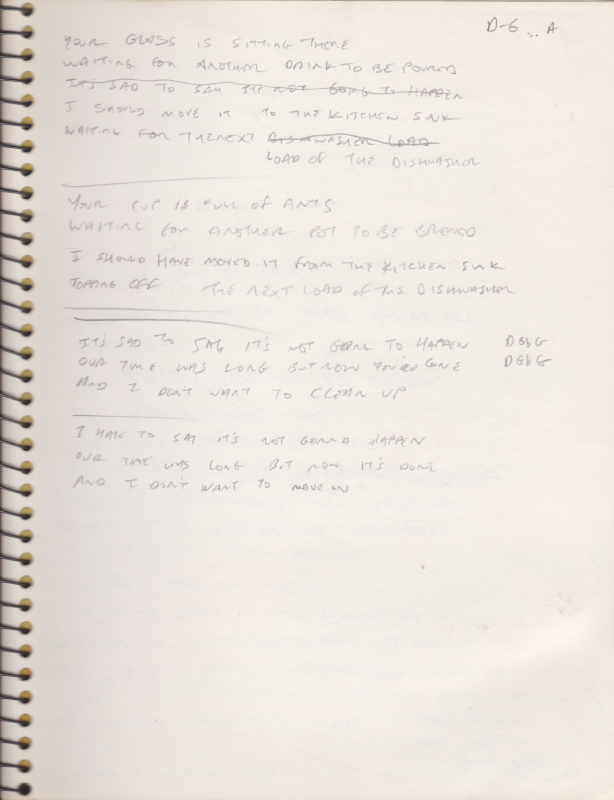 D-G ... A
YOUR GLASS IS SITTING THERE
WAITING FOR ANOTHER DRINK TO BE POURED
IT'S SAD TO SAY IT'S NOT GOING TO HAPPEN
I SHOULD MOVE IT TO THE KITCHEN SINK
WAITING FOR THE NEXT DISHWASHER LOAD
LOAD OF THE DISHWASHER
YOUR CUP IS FULL OF ANTS
WAITING FOR ANOTHER POT TO BE BREWED
I SHOULD HAVE MOVED IT FROM THE KITCHEN SINK
TOPPING OFF THE NEXT LOAD OF THE DISHWASHER
IT'S SAD TO SAY IT'S NOT GOING TO HAPPEN D G b G
OUR TIME WAS LONG BUT NOW YOU'RE GONE D G b G
AND I DON'T WANT TO CLEAN UP
I HATE TO SAY IT'S NOT GONNA HAPPEN
OUR TIME WAS LONG BUT NOW IT'S DONE
AND I DON'T WANT TO MOVE ON